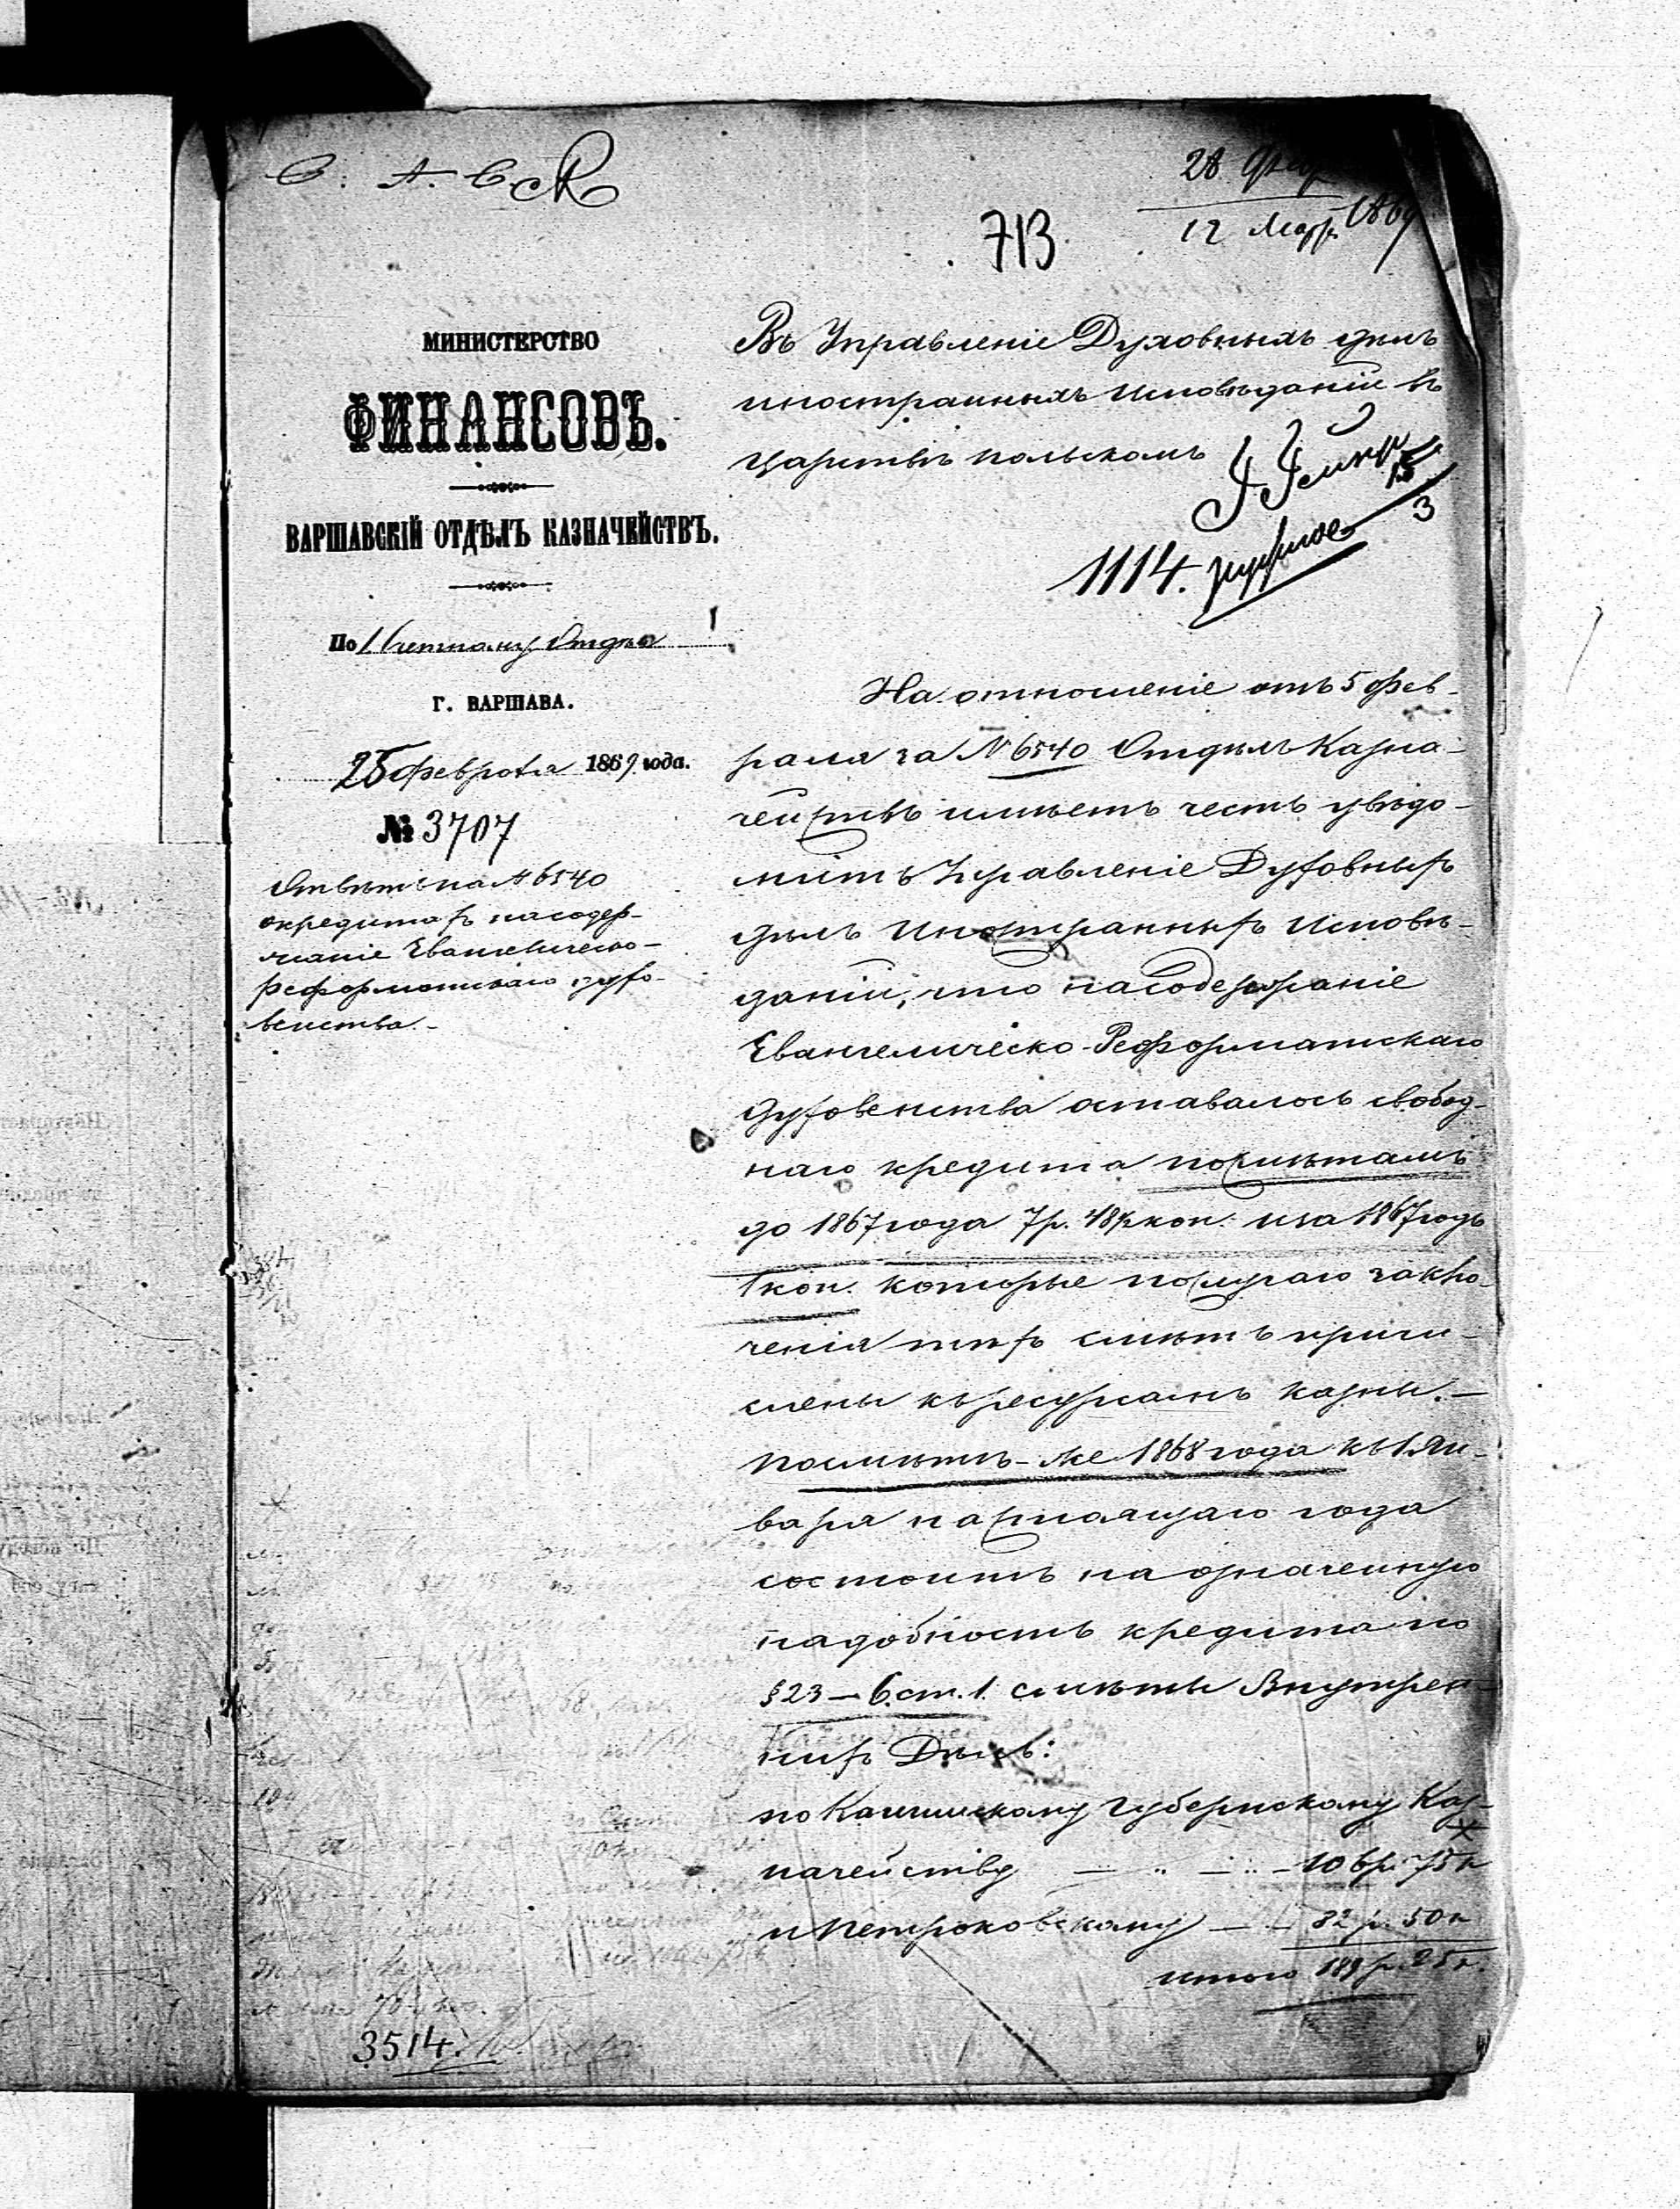 28 Февр
12 Марта 1869
713
МИНИСТЕРСТВО
ФИНАНСОВЪ.
ВАРШАВСКІЙ ОТДѢЛЪ КАЗНАЧЕЙСТВЪ.
По Счетному Отдѣл
Г. ВАРШАВА.
25 февраля 1869 года.
№ 3707
Отвѣтъ на № 6540
о кредитахъ на содер-
жаніе Евангелическо-
реформатскаго духо-
венства.
Въ Управленіе Духовныхъ дѣлъ
иностранныхъ Исповѣданій въ
Царствѣ Польскомъ
15
3
1114.
На отношеніе отъ 5 фев-
раля за № 6540 Отдѣлъ Казна-
чействъ имѣетъ честь увѣдо-
мить Управленіе Духовныхъ
дѣлъ Иностранныхъ Исповѣ-
даній, что на содержаніе
Евангелическо-Реформатскаго
духовенства оставалось свобод-
наго кредита по смѣтамъ
до 1867 года 7 р. 48½ коп. и за 1867 годъ
1 коп. которые по случаю заклю-
ченія тѣхъ смѣтъ причи-
слены къ ресурсамъ казны.—
По смѣтѣ-же 1868 года къ 1 Ян-
варя настоящаго года
состоитъ на означенную
надобность кредита по
§ 23 — 6. ст. 1. смѣты Внутрен-
нихъ Дѣлъ:
по Калишскому Губернскому Каз-
начейству — " — " — 106 р. 75 к
и Петроковскому — — 82 р. 50 к
итого 189 р. 25 к.
3514.